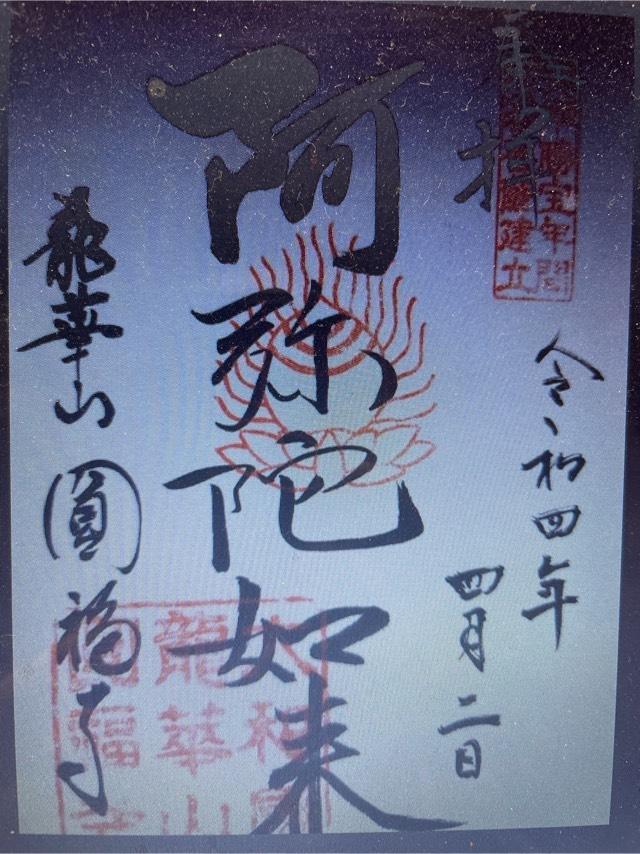 奉拝
勝宝年間
建立
令和四年
四月二日
阿弥陀如来
龍華山
圓福寺
龍華山
福寺